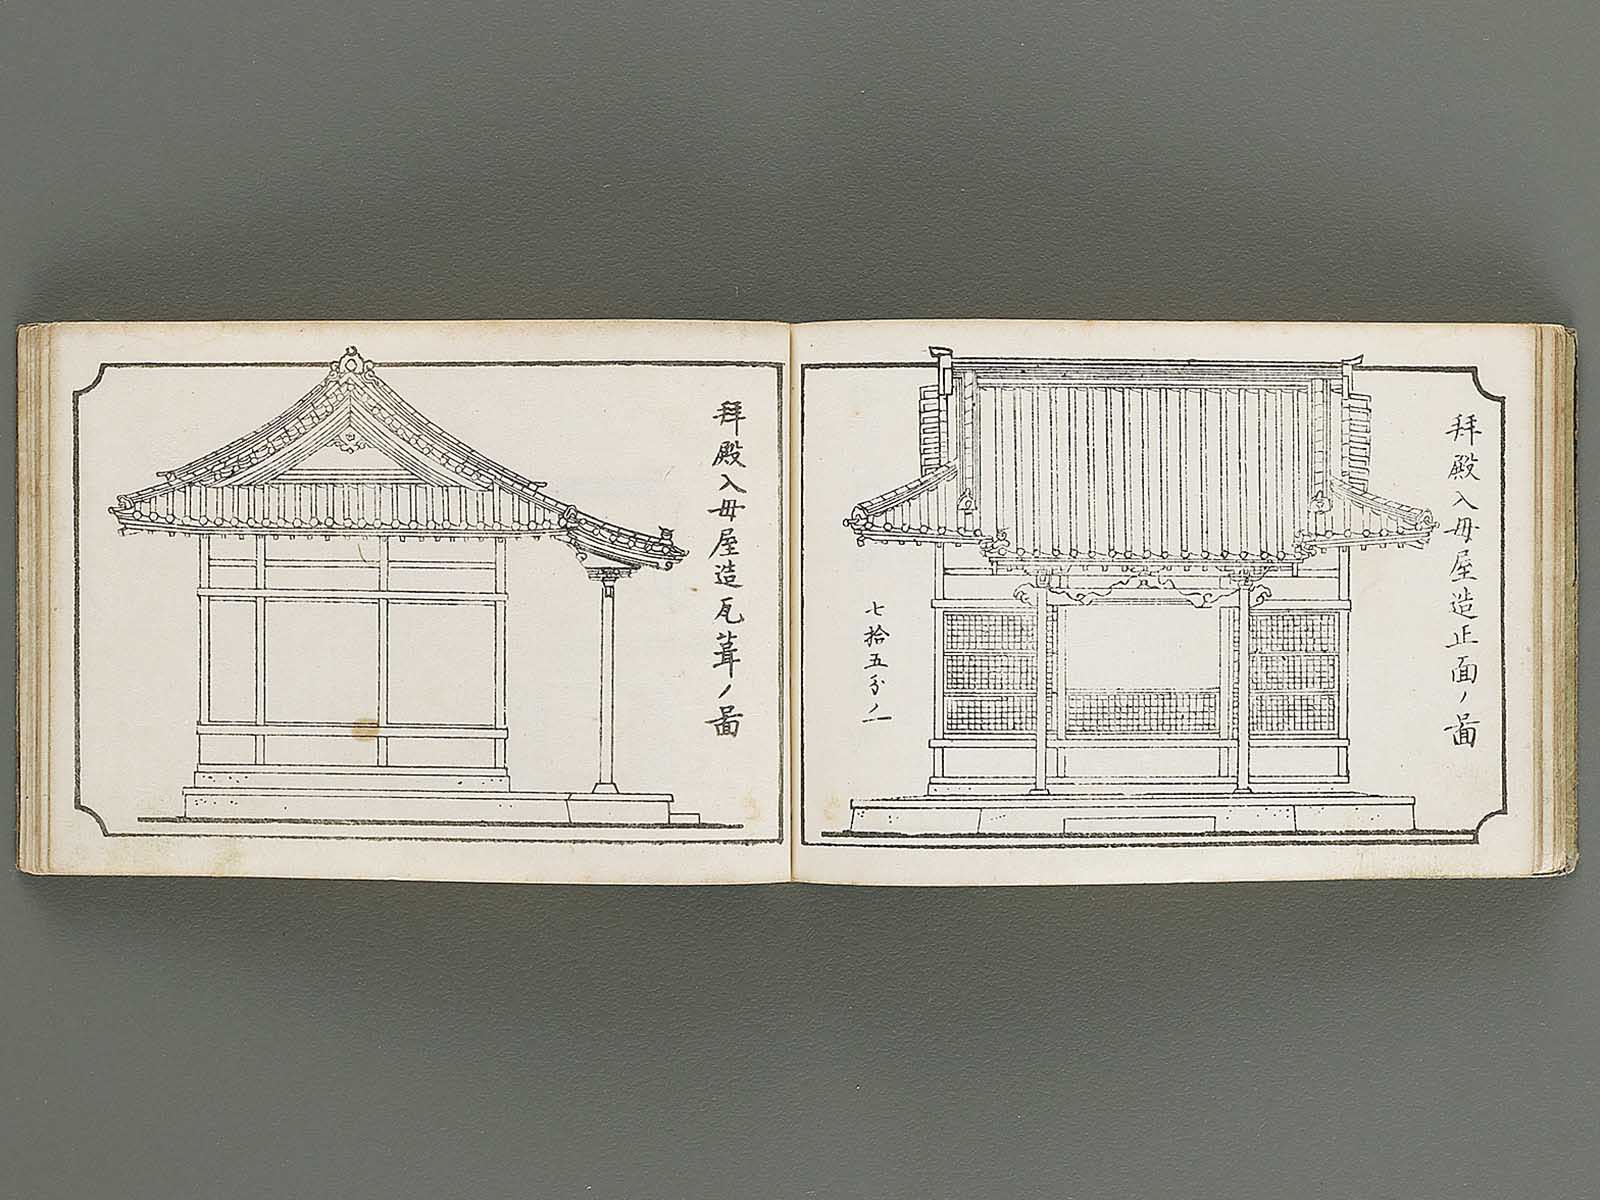 拜殿入母屋造正面ノ啚
七拾五分ノ一
拜殿入母屋造瓦葺ノ啚